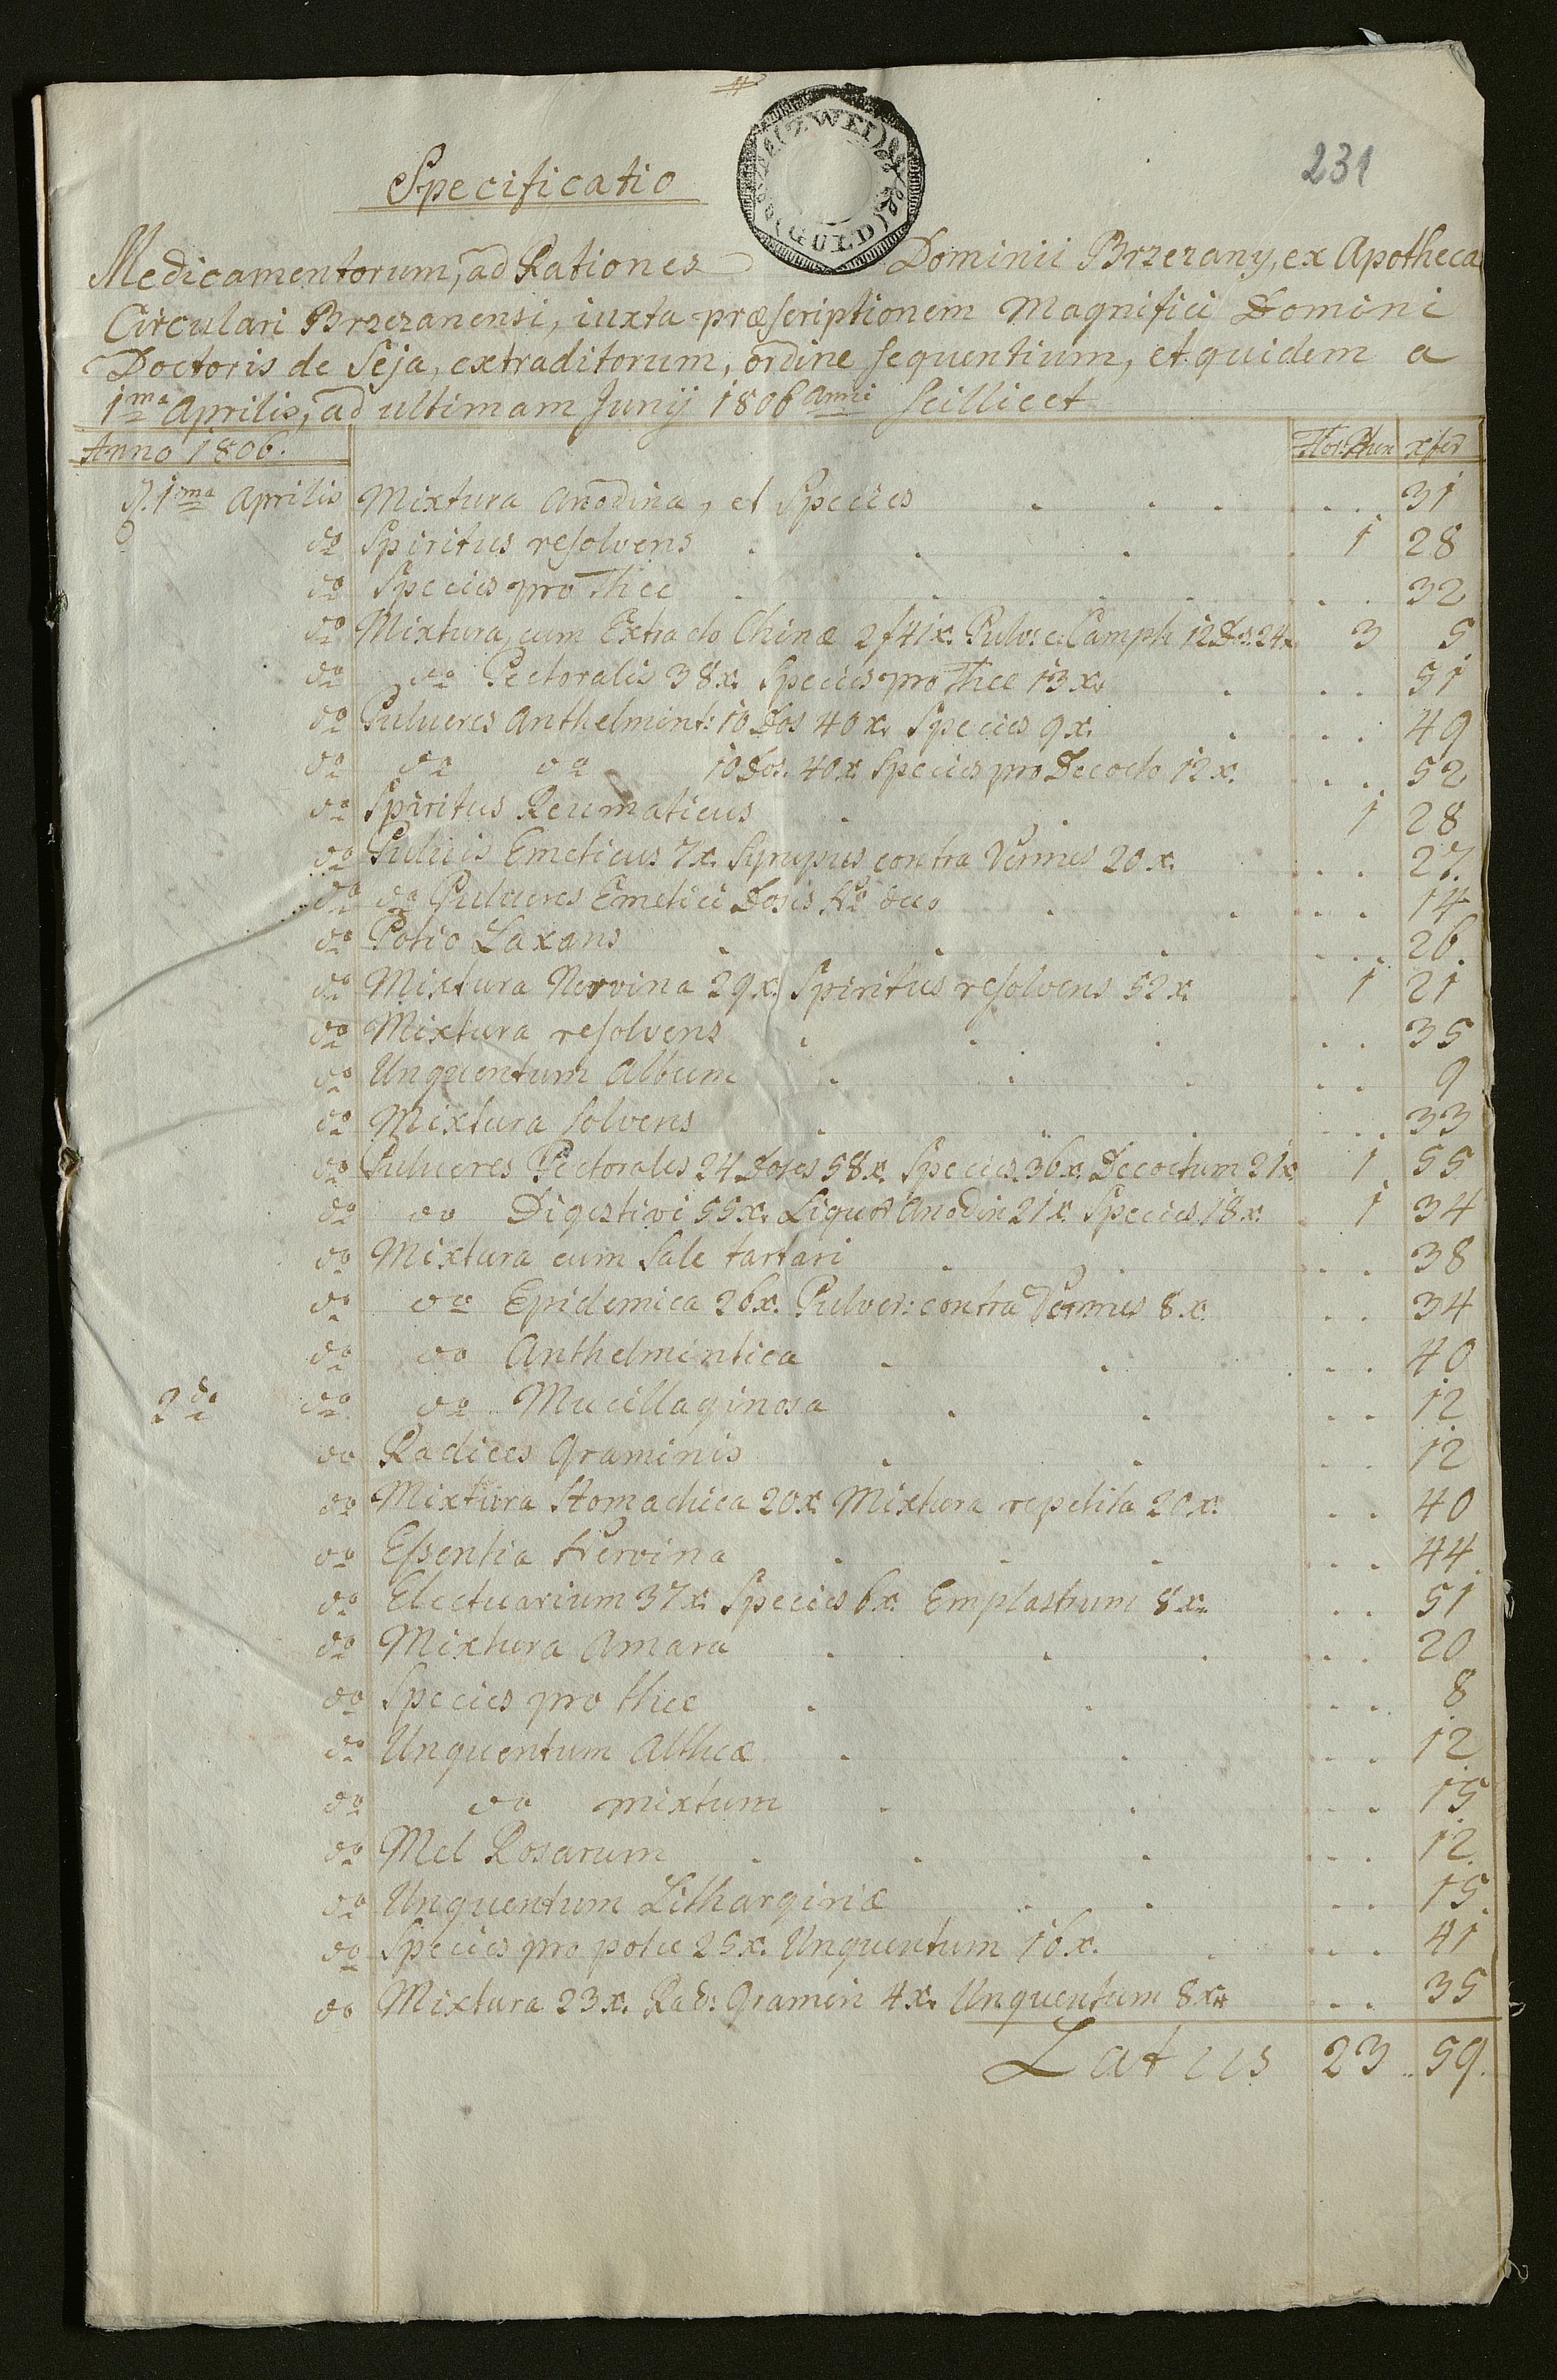 231
ZWEI
GULD
Specificatio
Medicamentorum, ad Rationes Dominii Brzezany, ex Apotheca
Circulari Brzezanensi, iuxta præscriptionem Magnifici Domini
Doctoris de Seja, extraditorum, ordine sequentium, et quidem a
1ma Aprilis, ad ultimam Junij 1806 anni scillicet
Anno 1806. Flor: Rhen xfer
D. 1ma Aprilis Mixtura Anodina, et Species . . . . . . 31
do Spiritus resolvens . . . 1 28
do Species pro Thee . . . . . . 32
do Mixtura cum Extracto Chinæ 2f 41x. Pulv: c. Camph 12 Dos. 24x. 3 5
do do Pectoralis 38x. Species pro Thee 13x. . . . 51
do Pulueres Anthelmint: 10 Dos 40x. Species 9x. . . . . 49
do do do 10 Dos. 40x. Species pro Decocto 12x. . . . 52
do Spiritus Reumaticus . . 1 28
do Pulvis Emeticus 7x. Syrupus contra Vermes 20x. . . . 27
do do Pulueres Emetici Dosis No duo . . . . . 14
do Potio Laxans . . . . . . 26
do Mixtura Nervina 29x. Spiritus resolvens 52x. 1 21
do Mixtura resolvens . . . . . 35
do Unguentum Album . . . . . 9
do Mixtura solvens . . . . . 33
do Pulueres Pectorales 24 Doses 58x. Species 36x. Decoctum 21x. 1 55
do do Digestivi 55x. Liquor Anodin 21x. Species 18x. 1 34
do Mixtura cum Sale tartari . . . . . 38
do do Epidemica 26x. Pulver: contra Vermes 8x. . . 34
do do Anthelmintica . . . . . 40
2da do do Mucillaginosa . . . . 12
do Radices Graminis . . . . 12
do Mixtura Stomachica 20x. Mixtura repetita 20x. . . 40
do Essentia Nervina . . . . . . 44
do Electuarium 37x. Species 6x. Emplastrum 8x. . . 51
do Mixtura Amara . . . . . . 20
do Species pro thee . . . . . 8
do Unguentum Altheæ . . . . . 12
do do mixtum . . . . . 15
do Mel Rosarum . . . . . . 12
do Unguentum Lithargiriæ . . . . 15
do Species pro potu 25x. Unguentum 16x. . . . . 41
do Mixtura 23x. Rad: Gramin 4x. Unguentum 8x. . . . 35
Latus 23 59